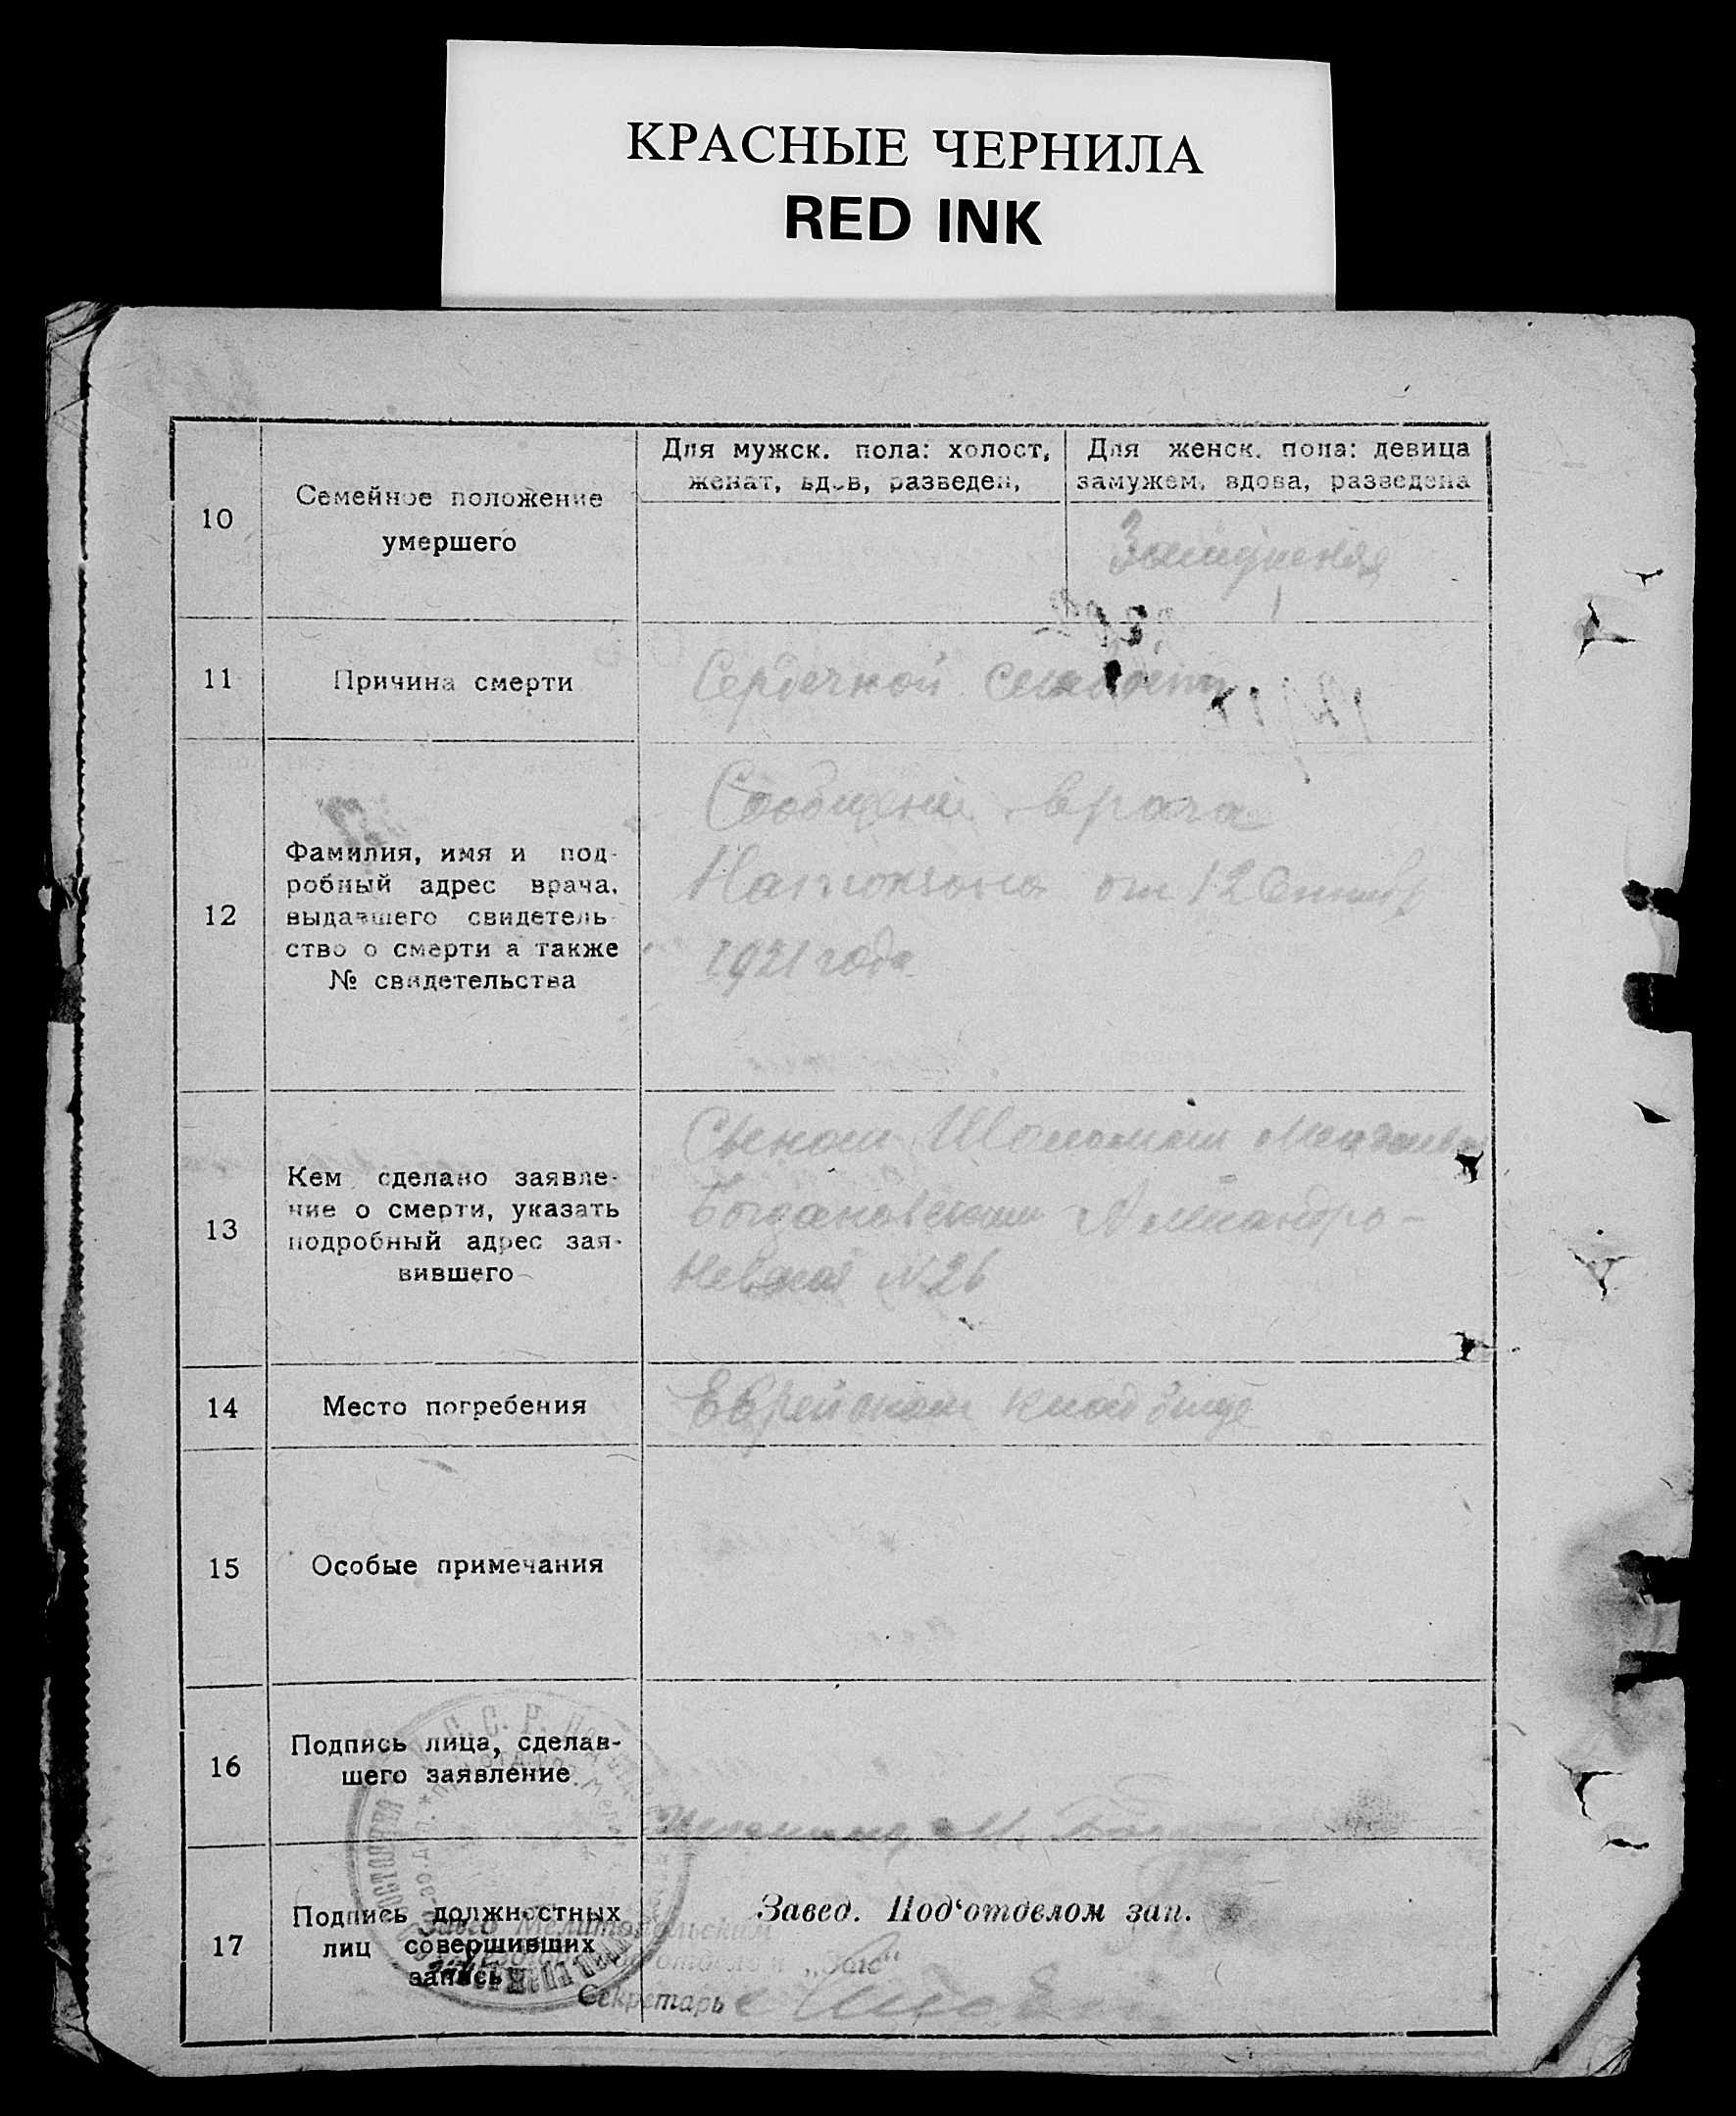 КРАСНЫЕ ЧЕРНИЛА
RED INK
10
Семейное положение
умершего
Для мужск. пола: холост,
женат, вдов, разведен,
Для женск. пола: девица
замужем, вдова, разведена
Замужняя
11
Причина смерти
Сердечной слабости
12
Фамилия, имя и под-
робный адрес врача,
выдавшего свидетель-
ство о смерти а также
№ свидетельства
Сообщение врача
от 12
1921 года
13
Кем сделано заявле-
ние о смерти, указать
подробный адрес зая-
вившего
Сыном Шоломом
Богдановским Александро-
Невская №26
14
Место погребения
Еврейском кладбище
15
Особые примечания
16
Подпись лица, сделав-
шего заявление
М.
17
Подпись должностных
лиц совершивших
запись
Завед. Под‘отделом зап.
Завед Мелитопольским
Секретарь